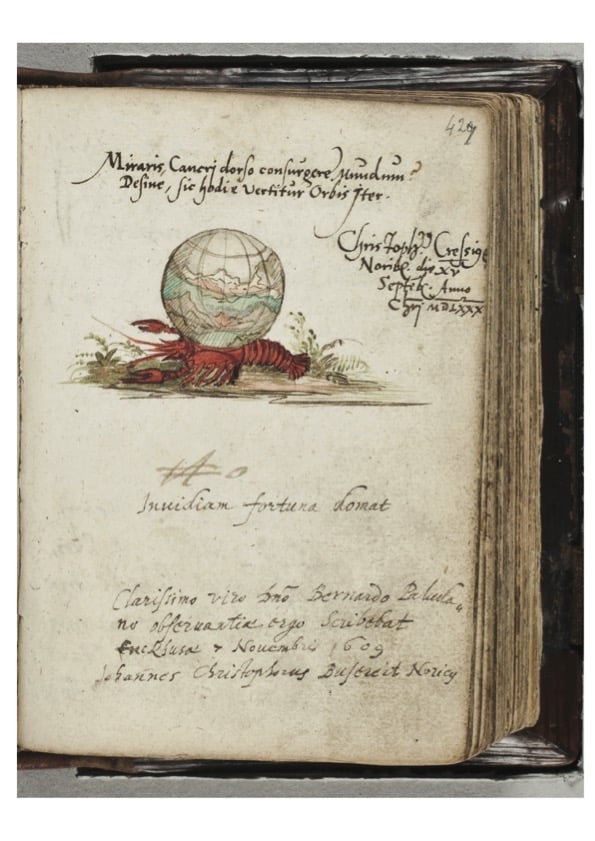 427
Miraris, Cancri dorso consurgere Mundum?
Desine, sic hodie vertitur Orbis Iter.
Christoph
Norib. xv
Septeb. Anno
Chri MDLXXX
Invidiam fortuna domat
Clarissimo viro Dno Bernardo Paluda„
no observantiæ ergo scribebat
Enchusæ 7 Novembris 1609
Johannes Christophorus